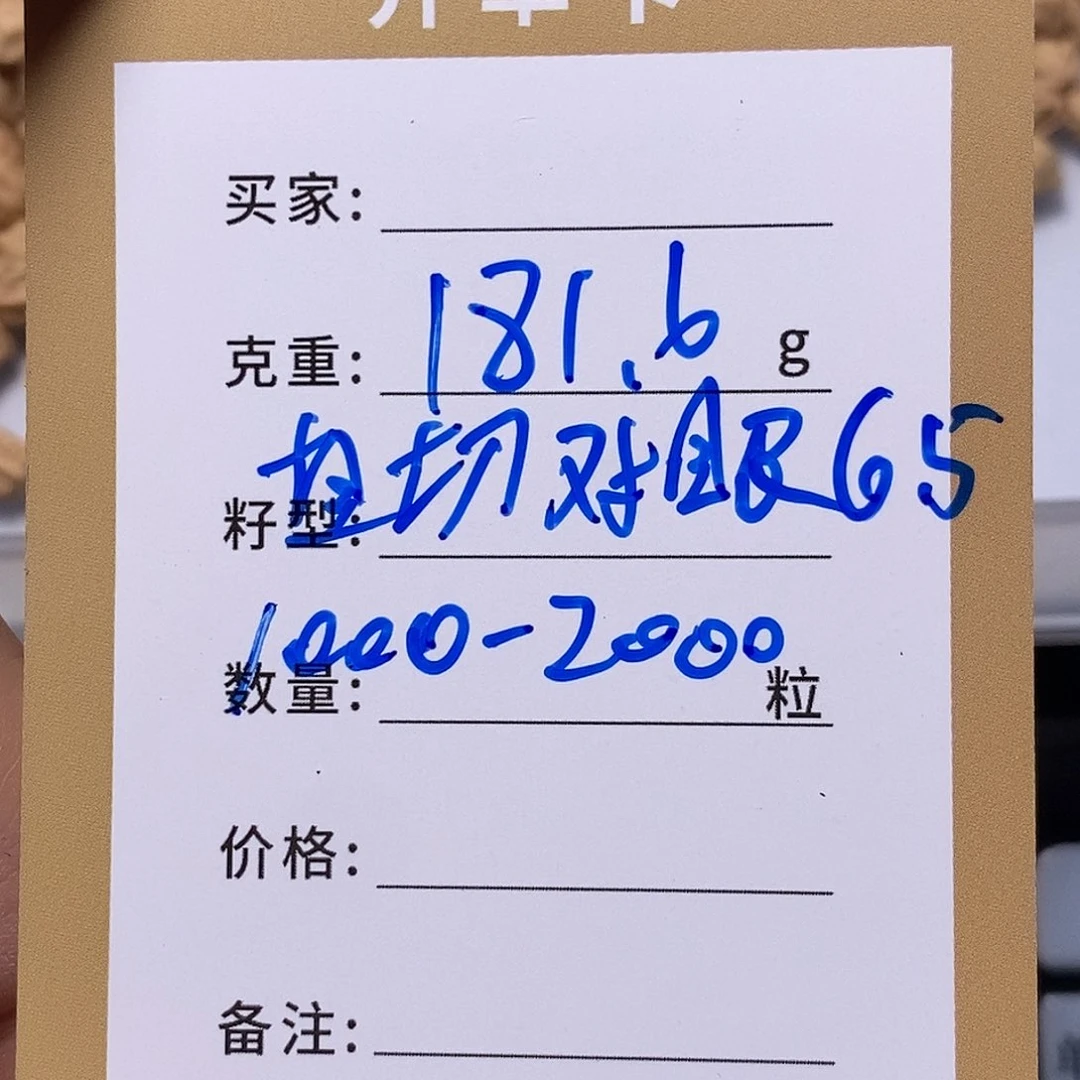 买家:
克重: 181.6 g
籽型: 直切对眼65
数量: 1000-2000 粒
价格:
备注: